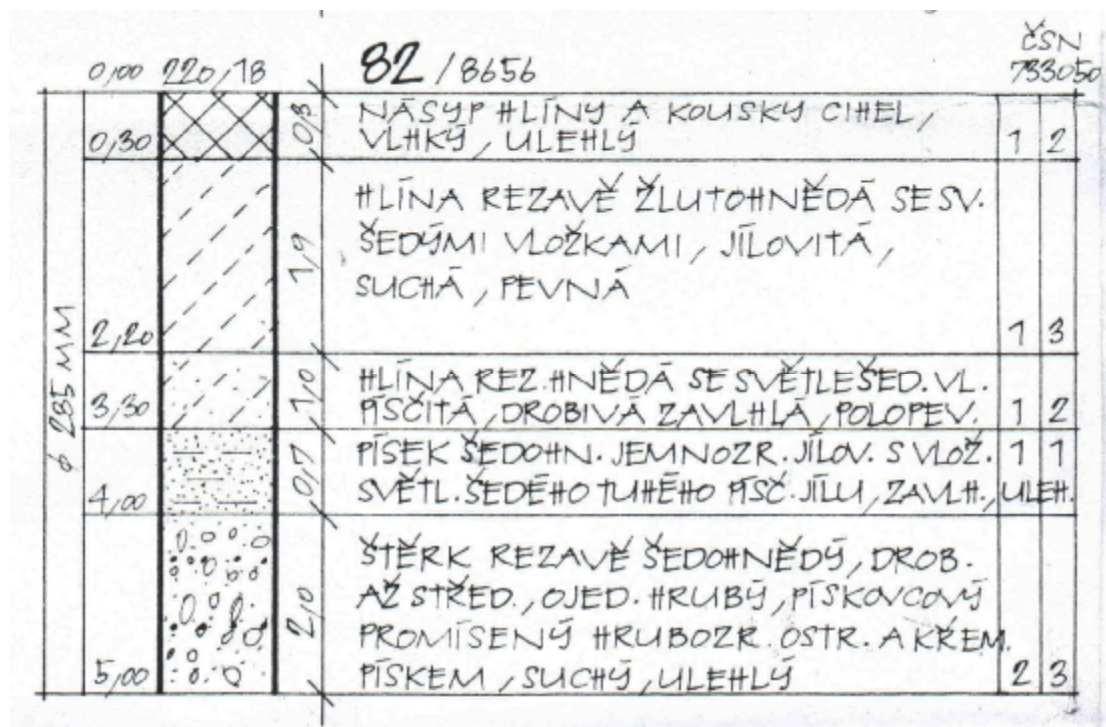 ČSN
0,00 220,18 82 / 8656 733050
NÁSYP HLÍNY A KOUSKY CIHEL,
0,30 0,3 VLHKÝ, ULEHLÝ 1 2
HLÍNA REZAVĚ ŽLUTOHNĚDÁ SE SV.
ŠEDÝMI VLOŽKAMI, JÍLOVITÁ,
1,9 SUCHÁ, PEVNÁ
φ 285 MM
2,20 1 3
HLÍNA REZ. HNĚDÁ SE SVĚTLEŠED. VL.
3,30 1,10 PÍSČITÁ, DROBIVÁ ZAVLHLÁ, POLOPEV. 1 2
PÍSEK ŠEDOHN. JEMNOZR. JÍLOV. S VLOŽ. 1 1
4,00 0,7 SVĚTL. ŠEDÉHO TUHÉHO PÍSČ. JÍLU, ZAVLH., ULEH.
ŠTĚRK REZAVĚ ŠEDOHNĚDÝ, DROB.
AŽ STŘED., OJED. HRUBÝ, PÍSKOVCOVÝ
2,0 PROMÍSENÝ HRUBOZR. OSTR. A KŘEM.
5,00 PÍSKEM, SUCHÝ, ULEHLÝ 2 3